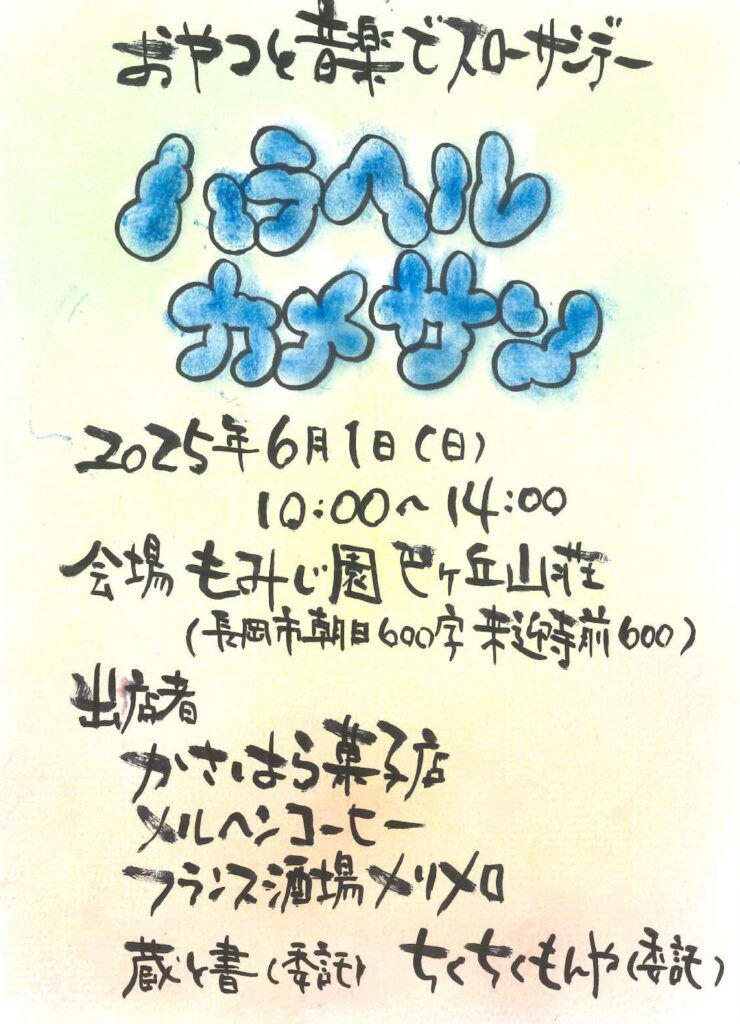 おやつと音楽でスローサンデー
ハラヘル
カメサン
2025年6月1日(日)
10:00〜14:00
会場 もみじ園 巴ヶ丘山荘
(長岡市朝日600字 来迎寺前600)
出店者
かさはら菓子店
メルヘンコーヒー
フランス酒場メリメロ
蔵と書(委託) ちくちくもんや(委託)